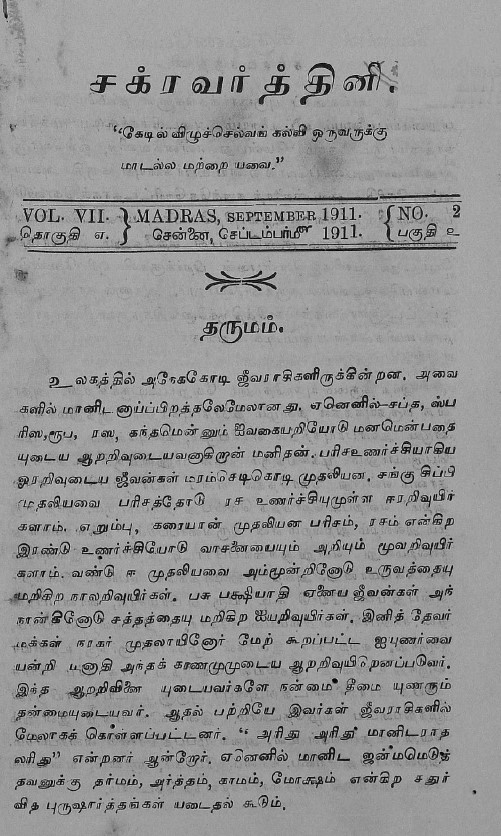 சக்ரவர்த்தினி.
“கேடில் விழுச்செல்வங் கல்வி ஒருவருக்கு
மாடல்ல மற்றை யவை.”
VOL. VII. } MADRAS, SEPTEMBER 1911. { NO. 2
தொகுதி எ. } சென்னை, செப்டம்பர்௴ 1911. { பகுதி உ
தருமம்.
உலகத்தில் அநேககோடி ஜீவராசிகளிருக்கின்றன. அவை
களில் மானிடனாய்ப்பிறத்தலேமேலானது. ஏனெனில்—சப்த, ஸ்ப
ரிஸ, ரூப, ரஸ, கந்தமென்னும் ஐவகையறியோடு மனமென்பதை
யுடைய ஆறறிவுடையவனாகிறான் மனிதன். பரிசஉணர்ச்சியாகிய
ஓரறிவுடைய ஜீவன்கள் மரம்செடிகொடி முதலியன. சங்கு சிப்பி
முதலியவை பரிசத்தோடு ரச உணர்ச்சியுமுள்ள ஈரறிவுயிர்
களாம். எறும்பு, கரையான் முதலியன பரிசம், ரசம் என்கிற
இரண்டு உணர்ச்சியோடு வாசனையையும் அறியும் மூவறிவுயிர்
களாம். வண்டு ஈ முதலியவை அம்மூன்றினோடு உருவத்தையு
மறிகிற நாலறிவுயிர்கள். பசு பக்ஷியாதி ஏனைய ஜீவன்கள் அந்
நான்கினோடு சத்தத்தையு மறிகிற ஐயறிவுயிர்கள். இனித் தேவர்
மக்கள் நரகர் முதலாயினோர் மேற் கூறப்பட்ட ஐபுணர்வை
யன்றி மனாதி அந்தக் கரணமுமுடைய ஆறறிவுயிரெனப்படுவர்.
இந்த ஆறறிவினை யுடையவர்களே நன்மை தீமை யுணரும்
தன்மையுடையவர். ஆதல் பற்றியே இவர்கள் ஜீவராசிகளில்
மேலாகக் கொள்ளப்பட்டனர். “அரிது அரிது மானிடராத
லரிது” என்றனர் ஆன்றோர். ஏனெனில் மானிட ஜன்மமெடுத்
தவனுக்கு தர்மம், அர்த்தம், காமம், மோக்ஷம் என்கிற சதுர்
வித புருஷார்த்தங்கள் யடைதல் கூடும்.